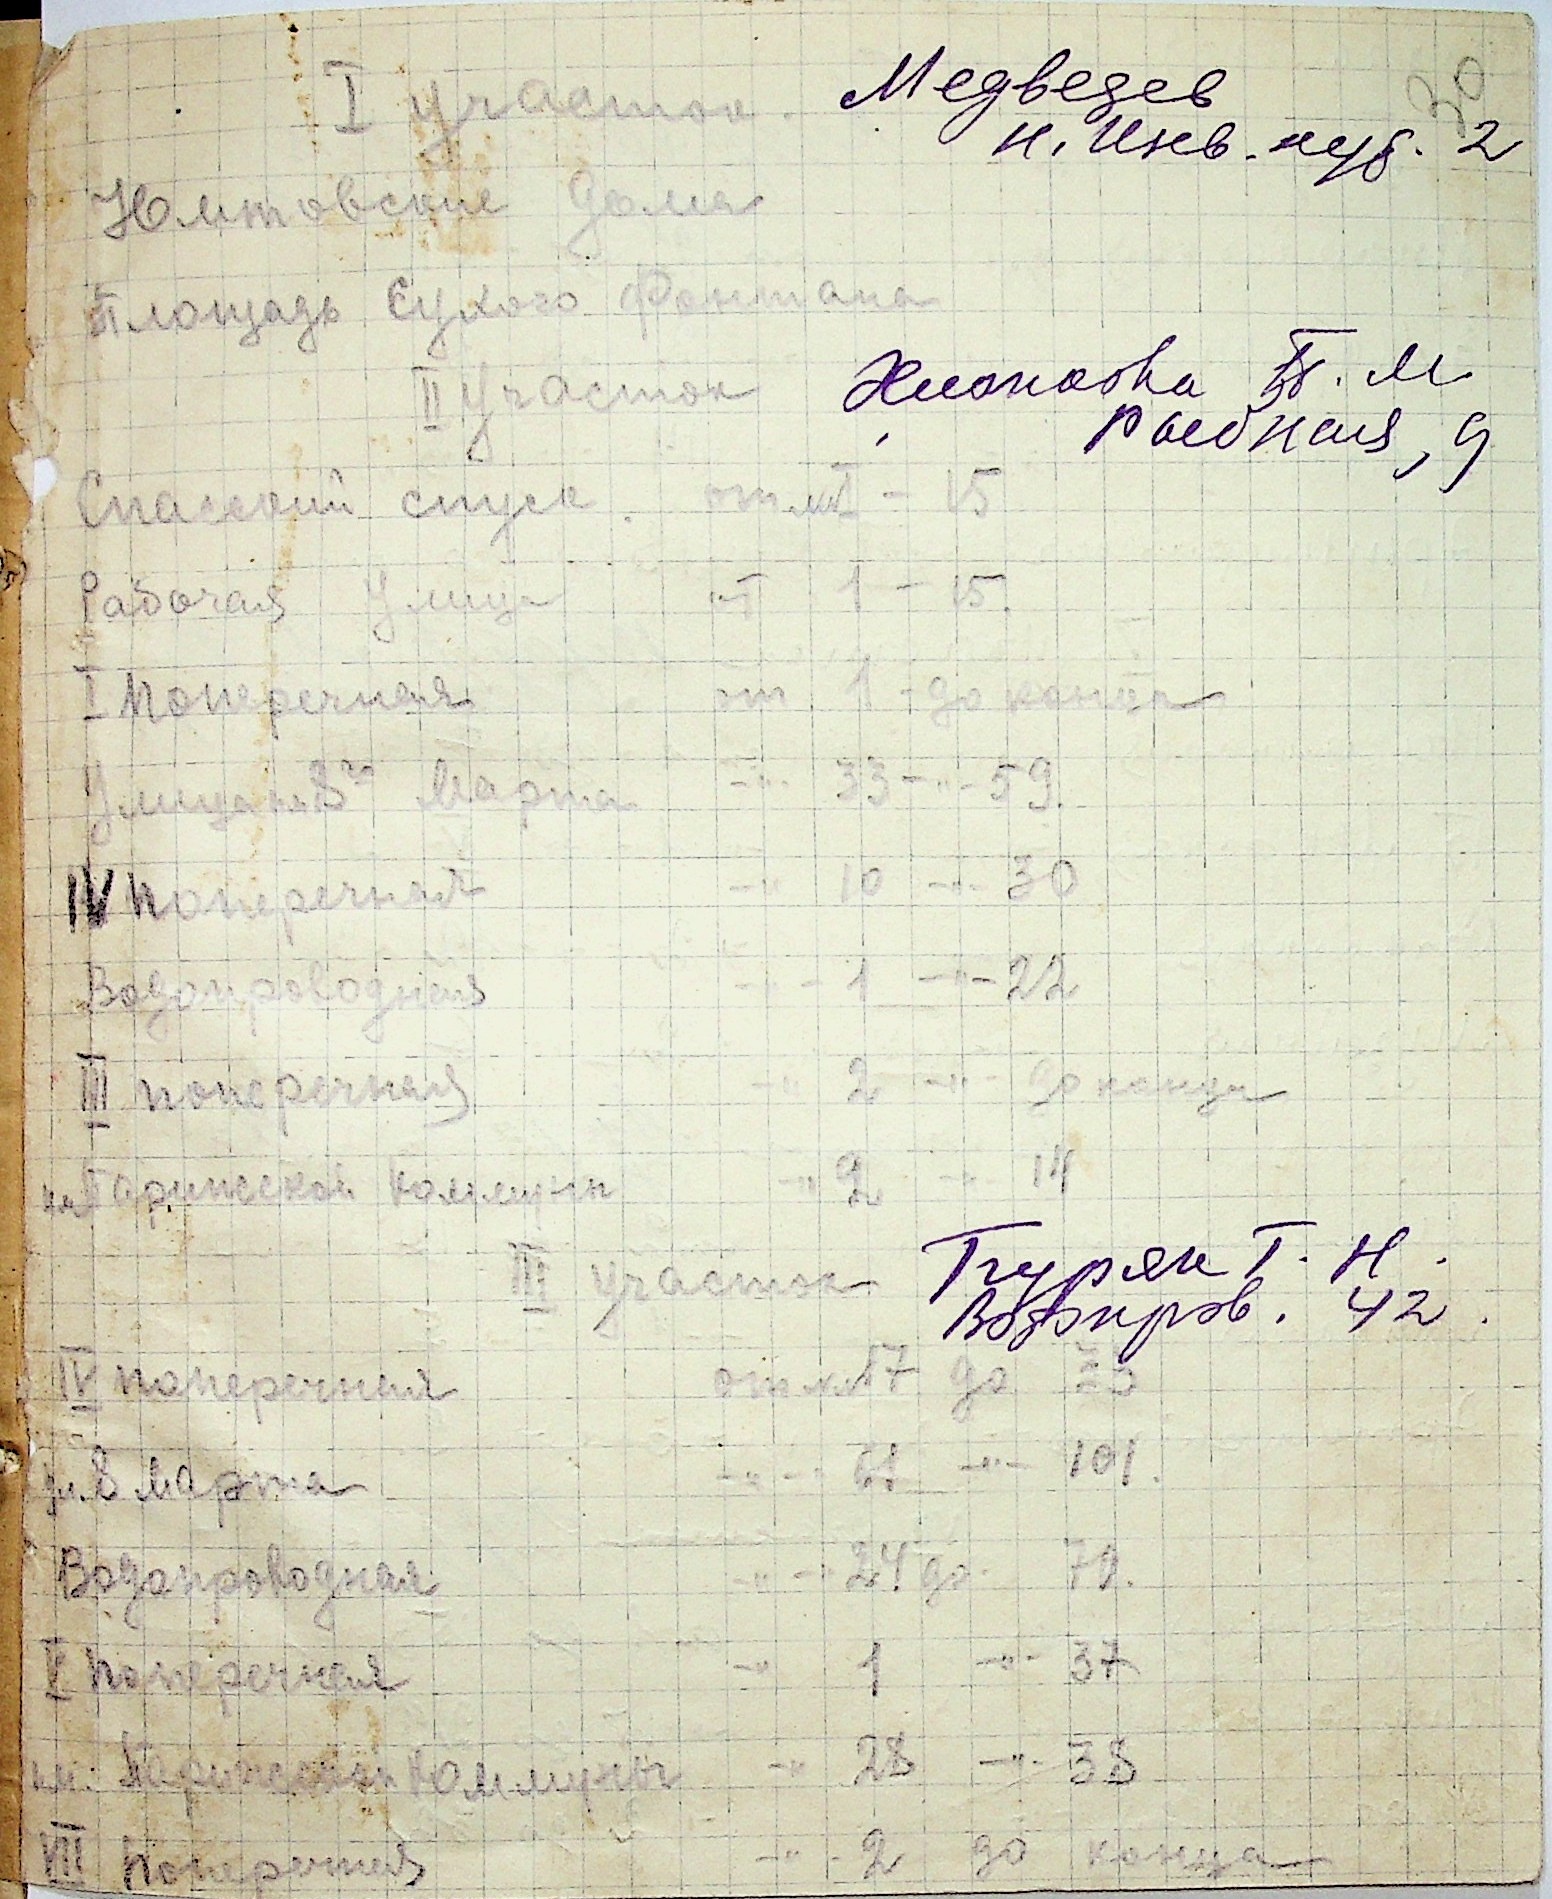 30
I участок. Медведев
н. Инв. куб. 2
Юмтовские дома
Площадь Сухого Фонтана
II участок Т. М.
Рыбная, 9
Спасский спуск. от № I – 15
Рабочая улица от 1 – 15.
I Поперечная от 1 - до конца
Улица 8го Марта –"– 33 –"– 59.
IV поперечная –"– 10 –"– 30
Водопроводная –"– 1 –"– 22
III поперечная –"– 2 –"– до конца
Парижской Коммуны –"– 2 –"– 14
III участок Г. Н.
Водопров. 42.
IV поперечная от № 17 до
ул. 8 Марта –"– 61 –"– 101.
Водопроводная –"– 24 до 79.
V поперечная –"– 1 –"– 37
Парижской Коммуны –"– 28 –"– 38
VII поперечная –"– 2 до конца